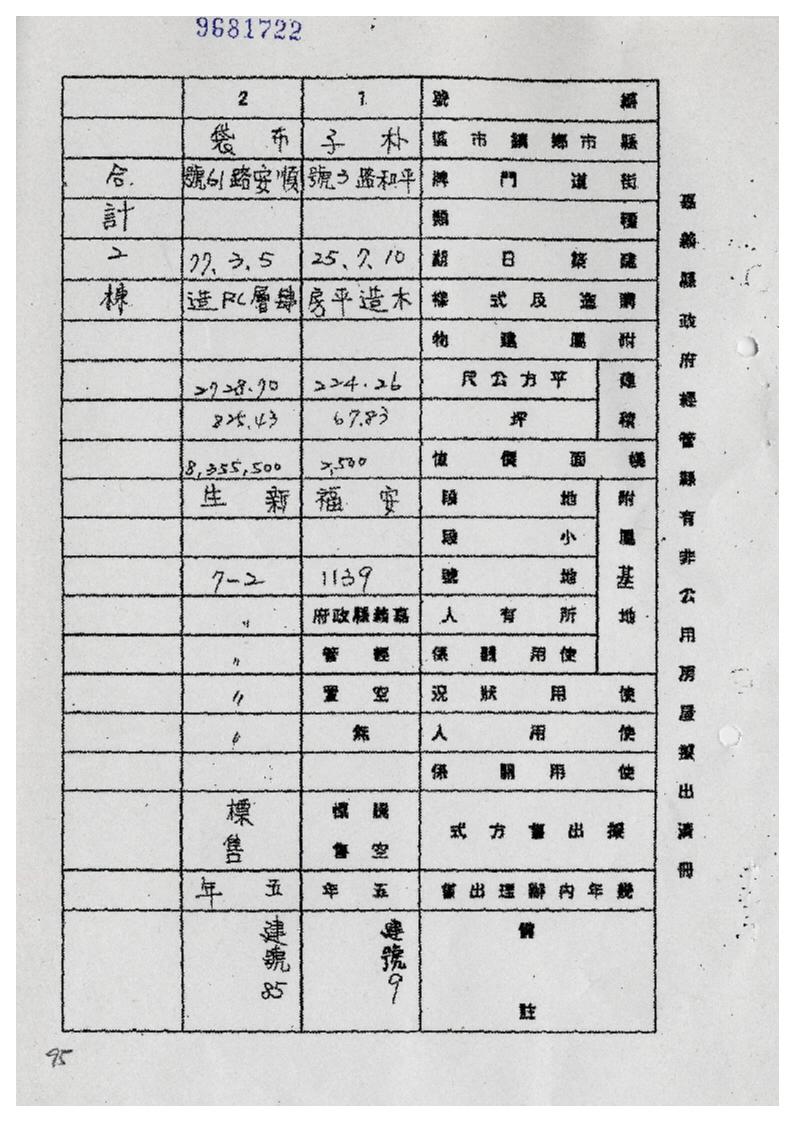 9681722
嘉義縣政府經管縣有非公用房屋擬出清冊
編號 1 2
縣市鄉鎮市區 朴子 布袋
街道門牌 平和路3號 順安路61號
種類
建築日期 25.7.10 77.3.5
構造及式樣 木造平房 肆層RC造
附屬建物
建積
平方公尺 224.26 2728.70
坪 67.83 825.43
帳面價值 2,500 8,355,500
附屬基地
地段 安福 新生
小段
地號 1139 7-2
所有人 嘉義縣政府 〃
使用關係 經管 〃
使用狀況 空置 〃
使用人 無 〃
使用關係
擬出售方式 騰空標售 標售
幾年內辦理出售 五年 五年
備註 建號9 建號85
合計2棟
95